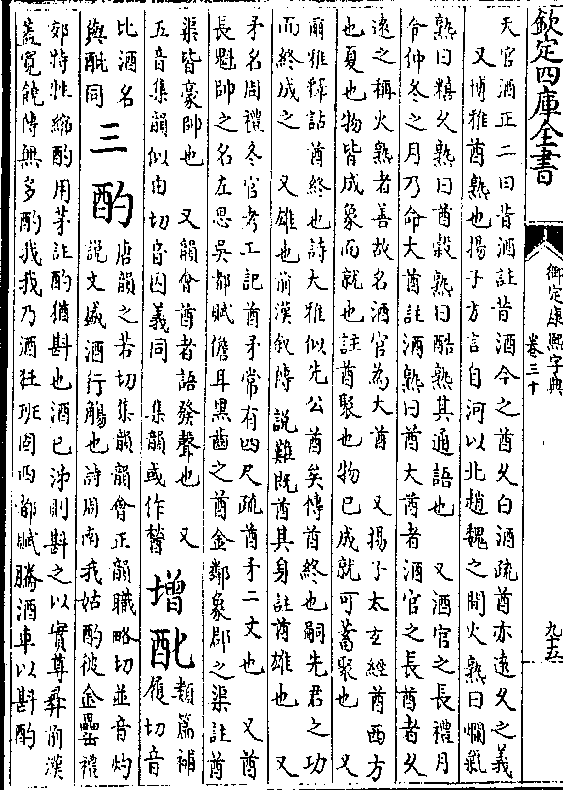 欽定四庫全書
御定康熙字典
卷三十
九十五
天官酒正二曰昔酒註昔酒今之酋久白酒疏酋亦遠久之義
又博雅酋熟也揚子方言自河以北趙魏之間火熟曰爛氣
熟曰糦久熟曰酋穀熟曰酷熟其通語也　又酒官之長禮月
令仲冬之月乃命大酋註酒熟曰酋大酋者酒官之長酋者久
遠之稱火熟者善故名酒官為大酋　又揚子太玄經酋西方
也夏也物皆成象而就也註酋聚也物已成就可蓄聚也　又
爾雅釋詁酋終也詩大雅似先公酋矣傳酋終也嗣先君之功
而終成之　又雄也前漢敘傳說難既酋其身註酋雄也　又
矛名周禮冬官考工記酋矛常有四尺疏酋矛二丈也　又酋
長魁帥之名左思吳都賦儋耳黑齒之酋金鄰象郡之渠註酋
渠皆豪帥也　又韻會酋者語發聲也　又
五音集韻似由切音囚義同　集韻或作醔
增
酏
類篇補
履切音
比酒名
與酏同
三
酌
唐韻之若切集韻韻會正韻職略切並音灼
說文盛酒行觴也詩周南我姑酌彼金罍禮
郊特牲縮酌用茅註酌猶斟也酒已泲則斟之以實尊彝前漢
蓋寬饒傳無多酌我我乃酒狂班固西都賦騰酒車以斟酌